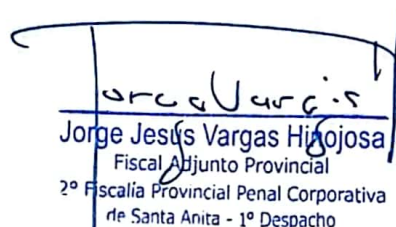 Jorge Vargas
Jorge Jesús Vargas Hinojosa
Fiscal Adjunto Provincial
2º Fiscalía Provincial Penal Corporativa
de Santa Anita - 1º Despacho